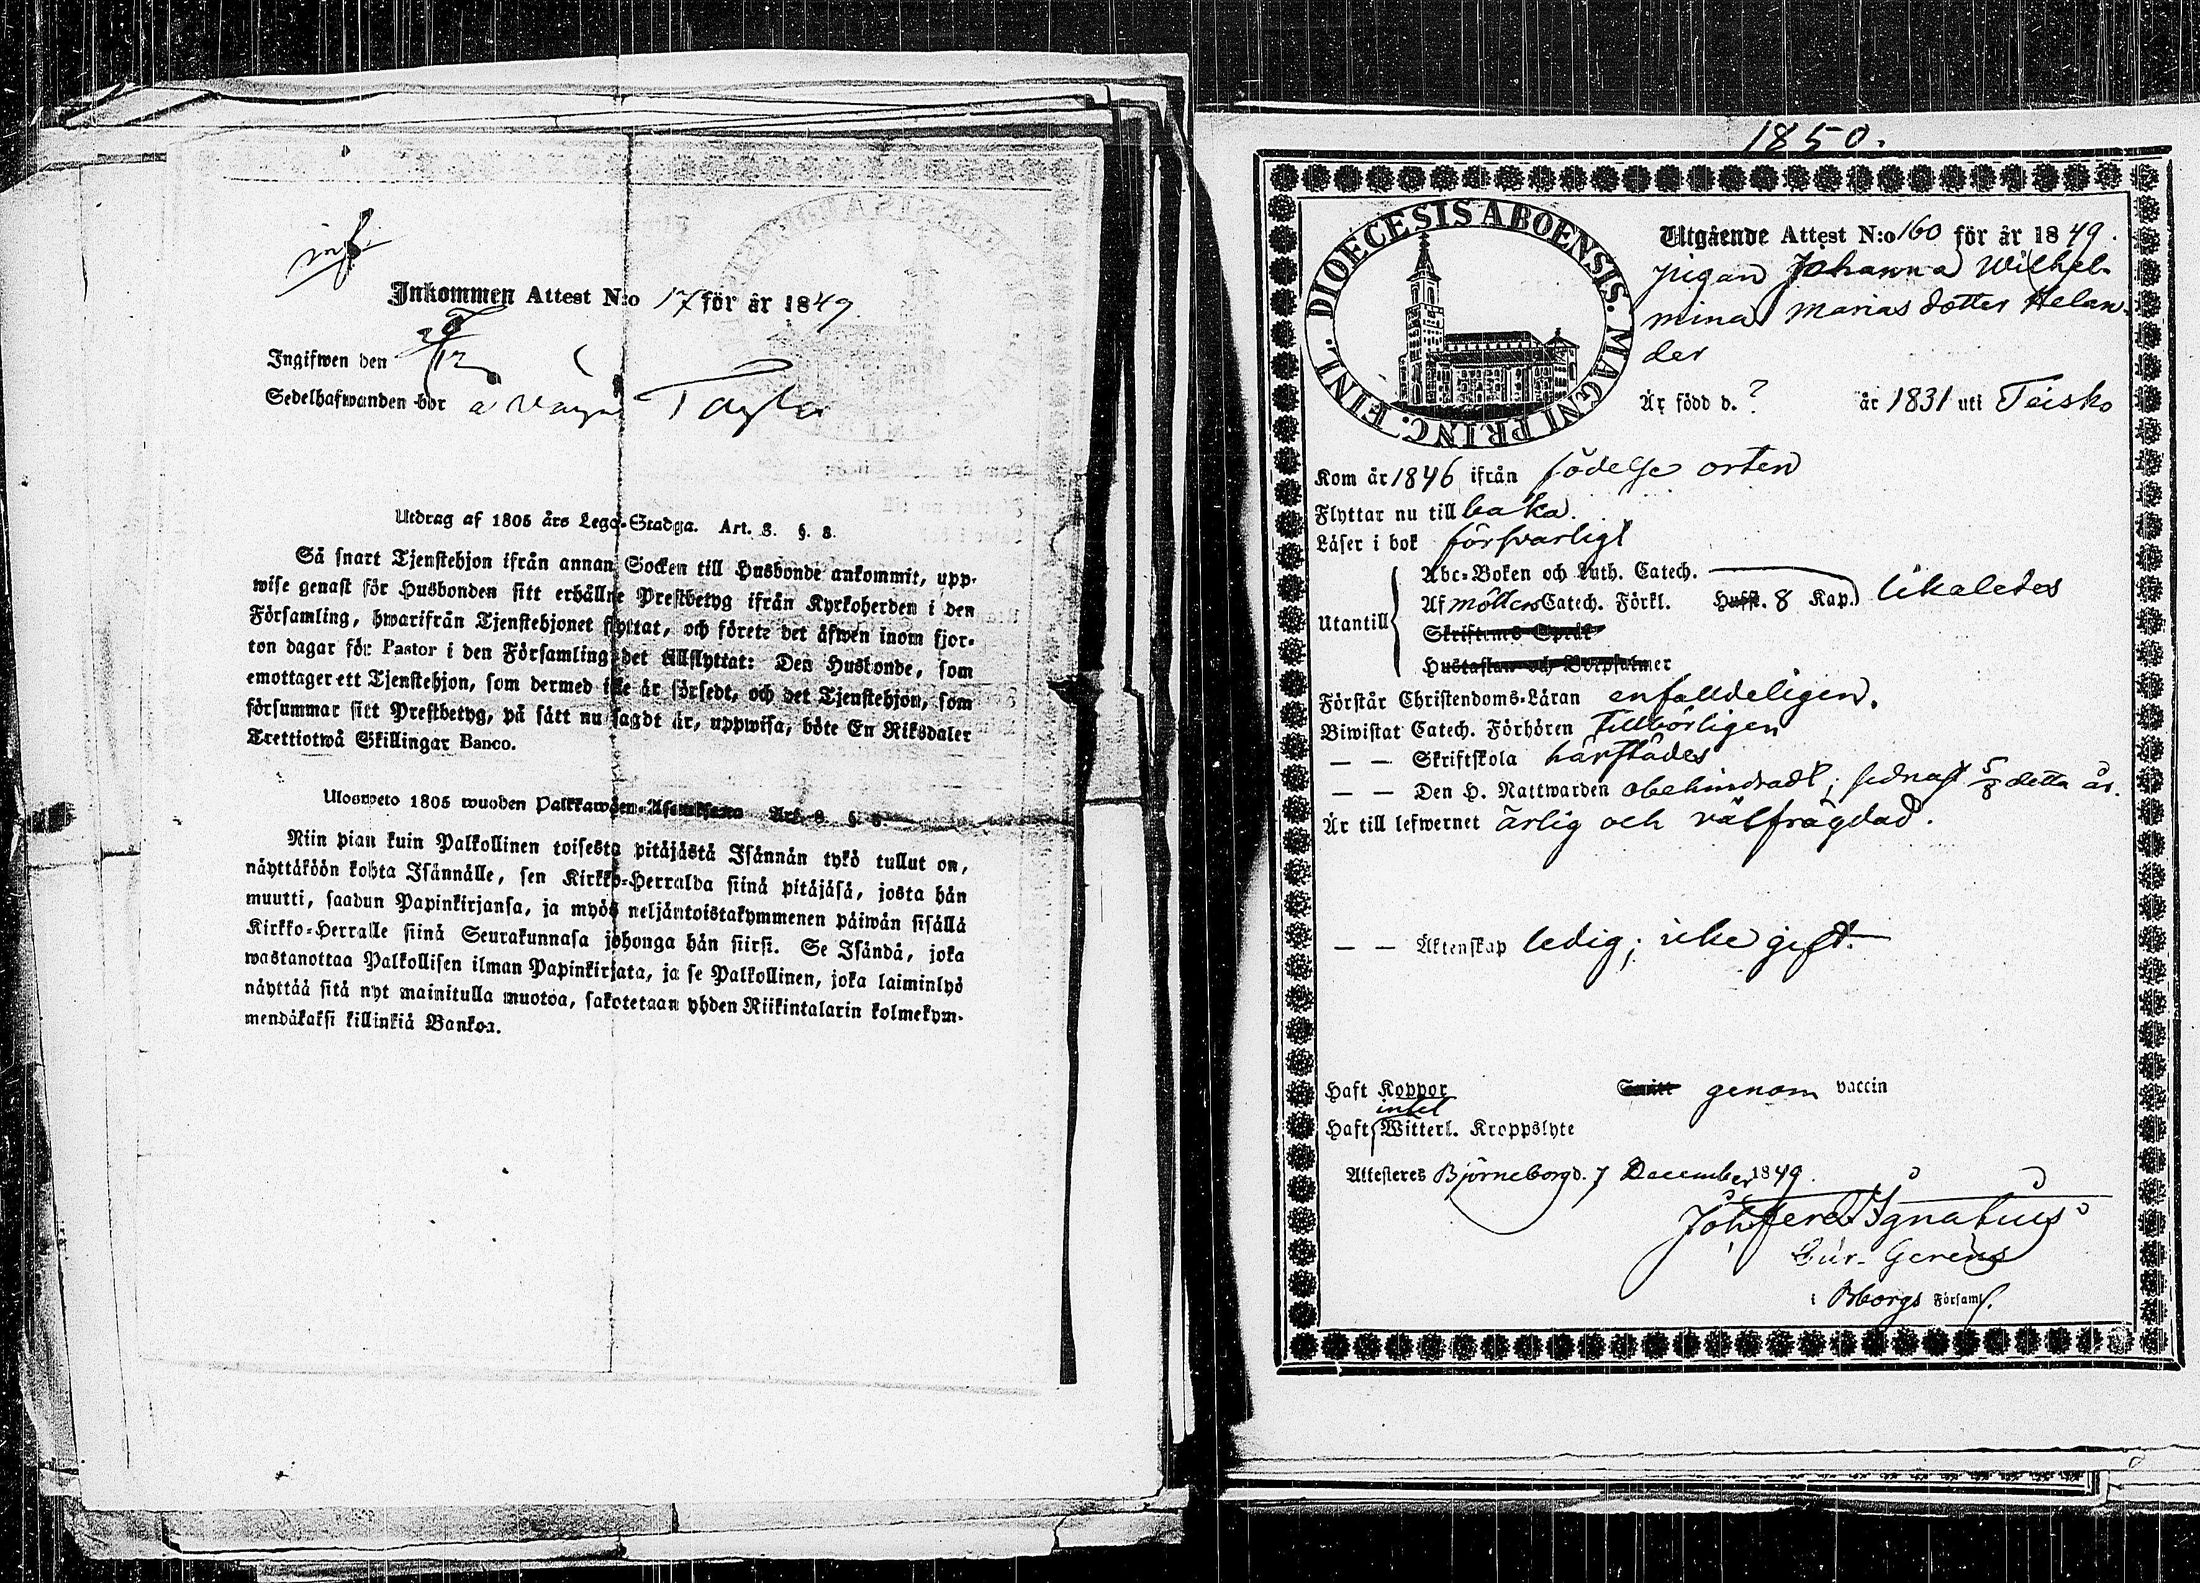 Inkommen Attest N:o 17 för år 1849.
Ingifwen den
Sedelhafwanden bor
Utdrag af 1805 års Lego-Stadga. Art. 8. §. 8.
Så snart Tjenstehjon ifrån annan Socken till Husbonde ankommit, upp-
wise genast för Husbonden sitt erhållne Prestbetyg ifrån Kyrkoherden i den
Församling, hwarifrån Tjenstehjonet flyttat, och förete det äfwen inom fjor-
ton dagar för Pastor i den Församling det tillflyttat: Den Husbonde, som
emottager ett Tjenstehjon, som dermed icke är försedt, och det Tjenstehjon, som
försummar sitt Prestbetyg, på sätt nu sagdt är, uppwisa, böte En Riksdaler
Trettiotwå Skillingar Banco.
Ulosweto 1805 wuoden Palkkawäen-Asetuksesta Art. 8 §. 8.
Niin pian kuin Palkollinen toisesta pitäjästä Isännän tykö tullut on,
näyttäköön kohta Isännälle, sen Kirkko-Herralda siinä pitäjäsä, josta hän
muutti, saadun Papinkirjansa, ja myös neljäntoistakymmenen päiwän sisällä
Kirkko-Herralle siinä Seurakunnasa johonga hän siirsi. Se Isändä, joka
wastanottaa Palkollisen ilman Papinkirjata, ja se Palkollinen, joka laiminlyö
näyttää sitä nyt mainitulla muotoa, sakotetaan yhden Riikintalarin kolmekym-
mendäkaksi killinkiä Bankoa.
1850.
DIOECESIS ABOENSIS. MAGNI PRINC. FINL.
Utgående Attest N:o 160 för år 1849.
pigan Johanna Wilhel-
mina Mariasdotter Helan-
der
Är född d. ? år 1831 uti Teisko
Kom år 1846 ifrån födelse orten
Flyttar nu till baka.
Läser i bok försvarligt
Abc-Boken och Luth. Catech.
Utantill Af Möllers Catech. Förkl. Husst. 8 Kap. likaledes
Skriftenes Språk
Hustaflan och Botpsalmer
Förstår Christendoms-Läran enfalldeligen.
Biwistat Catech. Förhören tillbörligen
— — Skriftskola härstädes
— — Den H. Nattwarden obehindradt; sednast 5/8 detta år.
Är till lefwernet ärlig och välfrägdad.
— — Äktenskap ledig; icke gift.
Haft Koppor genom vaccin
intet
Haft Witterl. Kroppslyte
Attesteres Björneborg d. 7 December 1849.
Joh. Ferd. Ignatius
Cur. Gerens
i Bborgs Församl.